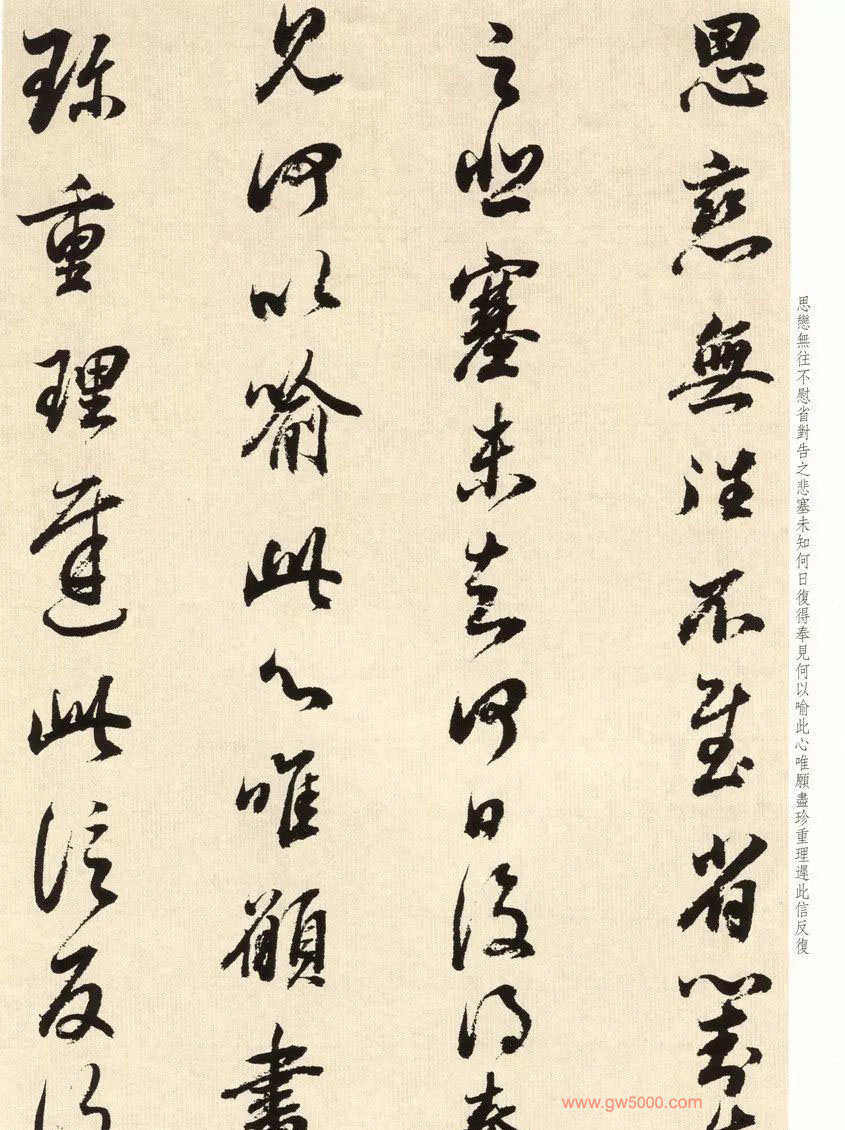 思戀無往不慰省對告
之悲塞未知何日復得奉
見何以喻此心唯願盡
珍重理遲此信反復
思戀無往不慰省對告之悲塞未知何日復得奉見何以喻此心唯願盡珍重理遲此信反復
www.gw5000.com